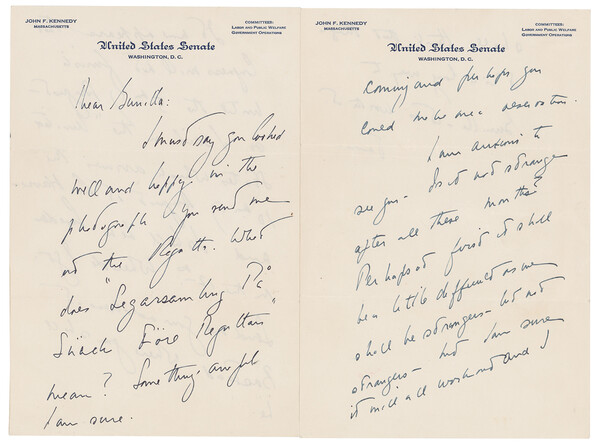 JOHN F. KENNEDY
MASSACHUSETTS
COMMITTEES:
LABOR AND PUBLIC WELFARE
GOVERNMENT OPERATIONS
United States Senate
WASHINGTON, D. C.
Dear Gunilla:
I must say you looked
well and happy in the
photograph you send me
at the Regatta. What
does "Segarsamling På
Skäck Före Regattan"
mean? Something awful
I am sure.
JOHN F. KENNEDY
MASSACHUSETTS
COMMITTEES:
LABOR AND PUBLIC WELFARE
GOVERNMENT OPERATIONS
United States Senate
WASHINGTON, D. C.
Coming and perhaps you
could make me a reservation.
I am anxious to
see you - Is it not strange
after all these months?
Perhaps at first it shall
be a little difficult as we
shall be strangers - but not
strangers - but I am sure
it will all work out and I